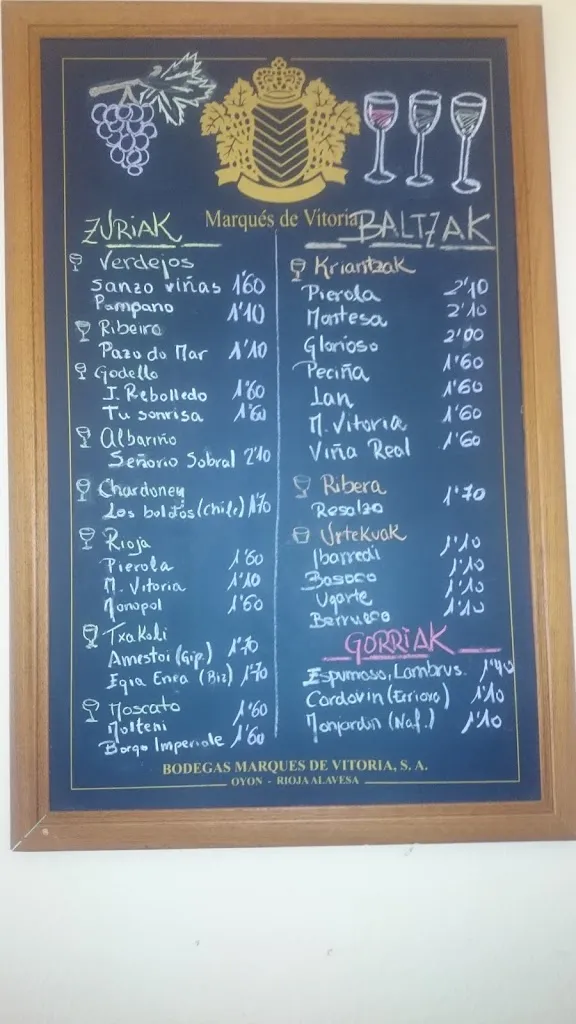 Marqués de Vitoria
ZURIAK
Verdejos
Sanzo viñas 1'60
Pampano 1'10
Ribeiro
Pazo do Mar 1'10
Godello
J. Rebolledo 1'60
Tu sonrisa 1'60
Albariño
Señorio Sobral 2'10
Chardoney
Los boldos (Chile) 1'70
Rioja
Pierola 1'60
M. Vitoria 1'10
Monopol 1'60
Txakoli
Amestoi (Gip.) 1'70
Egia Enea (Biz) 1'70
Moscato 1'60
Molteni
Borgo Imperiale 1'60
BALTZAK
Kriantzak
Pierola 2'10
Montesa 2'10
Glorioso 2'00
Peciña 1'60
Lan 1'60
M. Vitoria 1'60
Viña Real 1'60
Ribera
Resalso 1'70
Urtekoak
Ibarredi 1'10
Basoco 1'10
Ugarte 1'10
Berrueco 1'10
GORRIAK
Espumoso, Lambrus. 1'40
Cordovin (Errioxa) 1'10
Monjardin (Naf.) 1'10
BODEGAS MARQUES DE VITORIA, S. A.
OYON - RIOJA ALAVESA